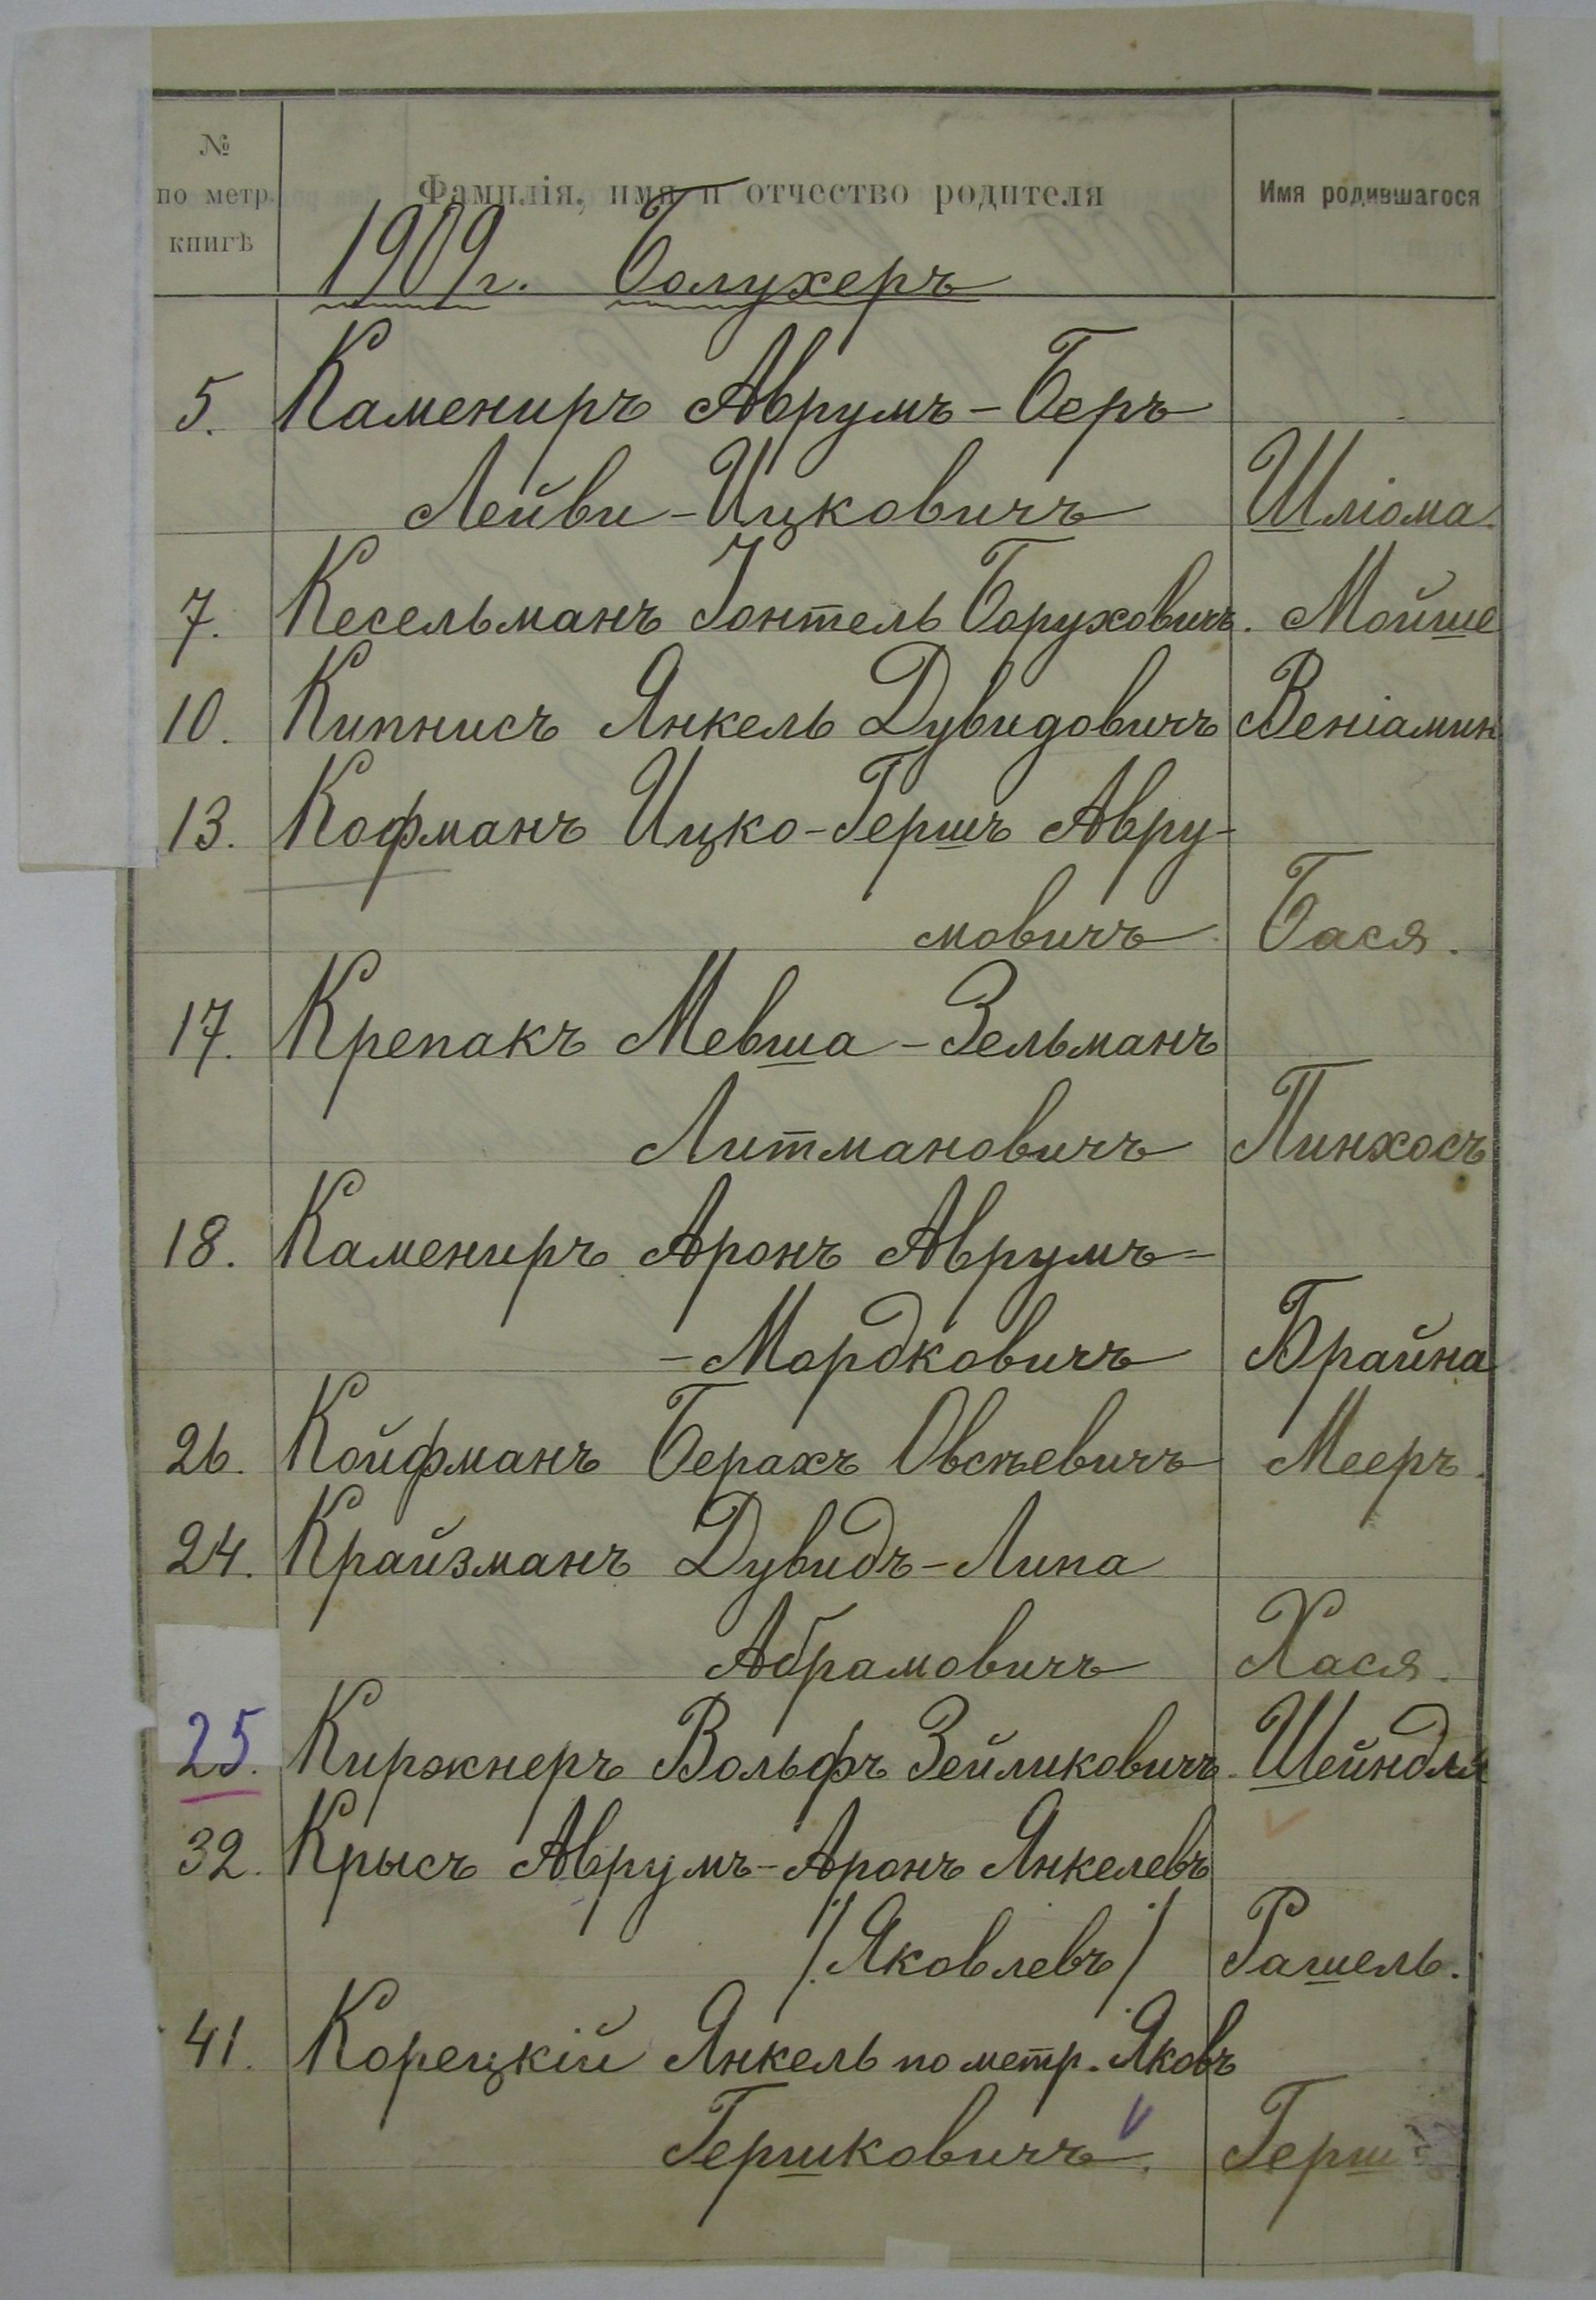 №
по метр.
книгѣ
Фамилія, имя и отчество родителя
Имя родившагося
1909 г. Болухеръ
5. Камениръ Аврумъ-Беръ
Лейви-Ицковичъ Шліома.
7. Кесельманъ Іонтель Боруховичъ. Мойше
10. Кипнисъ Янкель Дувидовичъ Веніамин
13. Кофманъ Ицко-Гершъ Авру-
мовичъ. Бася.
17. Крепакъ Мевша-Зельманъ
Литмановичъ Пинхосъ
18. Камениръ Аронъ Аврумъ-
-Мордковичъ Брайна
26. Койфманъ Берахъ Овсѣевичъ Мееръ.
24. Крайзманъ Дувидъ-Липа
Абрамовичъ Хася.
25. Киржнеръ Вольфъ Зейликовичъ. Шейндля
32. Крысъ Аврумъ-Аронъ Янкелевъ
/Яковлевъ/ Рашель.
41. Корецкій Янкель по метр. Яковъ
Гершковичъ. Герш